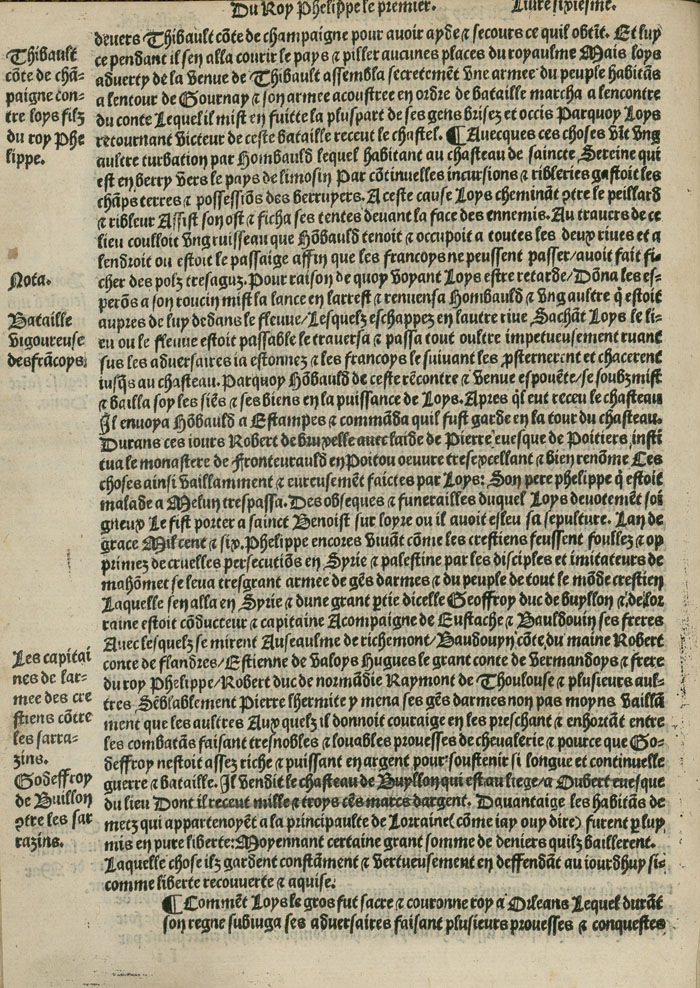 Du Roy Phelippe le premier. Livre sixiesme.
devers Thibault cōte de champaigne pour avoir ayde ⁊ secours ce quil obtīt. Et luy
ce pendant il sen alla courir le pays ⁊ piller aucunes places du royaulme Mais loys
adverty de la venue de Thibault assembla secretemēt vne armee du peuple habitās
a lentour de Gournay ⁊ son armee acoustree en ordre de bataille marcha a lencontre
du conte Lequel il mist en fuitte la pluspart de ses gens brisez et occis Parquoy Loys
retournant victeur de ceste bataille receut le chastel. ¶ Auecques ces choses vīt vng
aultre turbation par Hombauld lequel habitant au chasteau de saincte Sereine qui
est en berry vers le pays de limosin Par cōtinuelles incursions ⁊ ribleries gastoit les
chāps terres ⁊ possessiōs des berruyers. A ceste cause Loys chemināt ꝯtre le peillard
⁊ ribleur Assist son ost ⁊ ficha ses tentes devant la face des ennemis. Au travers de ce
lieu couloit vng ruisseau que Hōbauld tenoit ⁊ occupoit a toutes les deux rives et a
lendroit ou estoit le passaige affin que les francoys ne peussent passer/avoit fait fi-
cher des polz tresaguz. Pour raison de quoy voyant Loys estre retarde/Dōna les es-
perōs a son roucin mist la lance en larrest ⁊ renuersa Hombauld ⁊ vng aultre q̄ estoit
aupres de luy dedans le fleuve/Lesquelz eschappez en lautre rive Sachāt Loys le li-
eu ou le fleuve estoit passable le traversa ⁊ passa tout oultre impetueusement ruant
sus les adversaires ia estonnez ⁊ les francoys le suivant les ꝓsternerent et chacerent
iusq̄s au chasteau. Parquoy Hōbauld de ceste rēcontre ⁊ venue espouēte/se soubzmist
⁊ bailla soy les siēs ⁊ ses biens en la puissance de Loys. Apres q̄l eut receu le chasteau
Il envoya Hōbauld a Estampes ⁊ commāda quil fust garde en la tour du chasteau.
Durans ces iours Robert de bruxelle avec laide de Pierre evesque de Poitiers insti
tua le monastere de Fronteurauld en Poitou oeuvre tresexcellant ⁊ bien renōme Ces
choses ainsi vaillamment ⁊ eureusemēt faictes par Loys: Son pere phelippe q̄ estoit
malade a Melun trespassa. Des obseques ⁊ funerailles duquel Loys devotemēt soi
gneux Le fist porter a sainct Benoist sur loyre ou il avoit esleu sa sepulture. Lan de
grace Mil cent ⁊ six. Phelippe encores vivāt cōme les crestiens feussent foullez ⁊ op
primez de cruelles persecutiōs en Syrie ⁊ palestine par les disciples et imitateurs de
mahōmet se leva tresgrant armee de gēs darmes ⁊ du peuple de tout le mōde crestien
Laquelle sen alla en Syrie ⁊ dune grant ꝑtie dicelle Geoffroy duc de buyllon ⁊ de lor
raine estoit cōducteur ⁊ capitaine Acompaigne de Eustache ⁊ Bauldouin ses freres
Avec lesquelz se mirent Auseaulme de richemont/Baudouyn cōte du maine Robert
conte de flandres/Estienne de Valoys Hugues le grant conte de Vermandoys ⁊ frere
du roy Phelippe/Robert duc de normādie Raymont de Thoulouse ⁊ plusieurs aul-
tres Sēblablement Pierre lhermite y mena ses gēs darmes non pas moyns vaillā
ment que les aultres Aux quelz il donnoit couraige en les preschant ⁊ enhortāt entre
les combatās faisant tresnobles ⁊ louables prouesses de chevalerie ⁊ pource que Go-
deffroy nestoit assez riche ⁊ puissant en argent pour soustenir si longue et continuelle
guerre ⁊ bataille. Il vendit le chasteau de Buyllon qui est au liege/a Oubert evesque
du lieu Dont il receut mille ⁊ troys cēs marcs dargent. Davantaige les habitās de
metz qui appartenoyēt a la principaulte de Lorraine (cōme iay ouy dire) furent ꝑ luy
mis en pure liberte: Moyennant certaine grant somme de deniers quilz baillerent.
Laquelle chose ilz gardent constāment ⁊ vertueusement en deffendāt au iourdhuy si-
comme liberte recouverte ⁊ aquise.
¶ Commēt Loys le gros fut sacre ⁊ couronne roy a Orleans Lequel durāt
son regne subiuga ses adversaires faisant plusieurs prouesses ⁊ conquestes
Thibault
cōte de chā-
paigne con-
tre loys filz
du roy Phe
lippe.
Nota.
Bataille
vigoureuse
des frācoys.
Les capitai
nes de lar-
mee des cre
stiens cōtre
les sarra-
zins.
Godeffroy
de Buillon
ꝯtre les sar
razins.